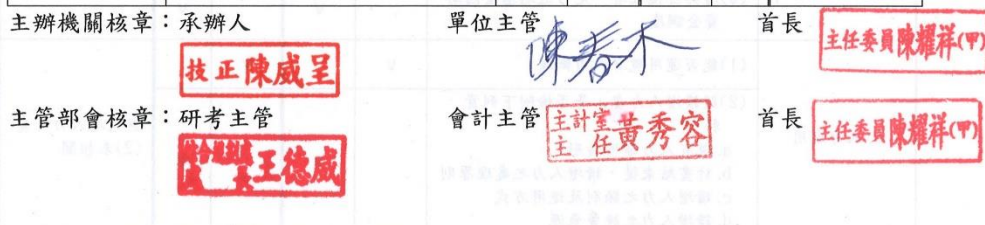 主辦機關核章：承辦人 單位主管 首長
技正陳威呈 陳春木 主任委員陳耀祥(甲)
主管部會核章：研考主管 會計主管 首長
綜合規劃處處長王德威 主計室主任黃秀容 主任委員陳耀祥(甲)